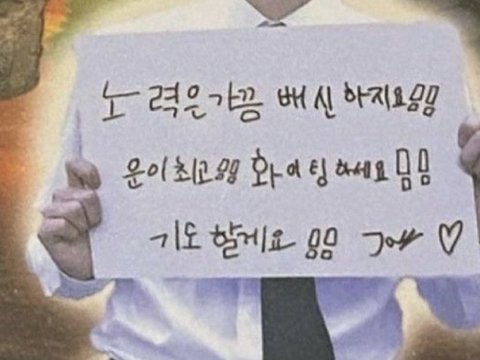 노력은 가끔 배신하지요!!
운이 최고!! 화이팅하세요!!
기도 할게요!! ♡